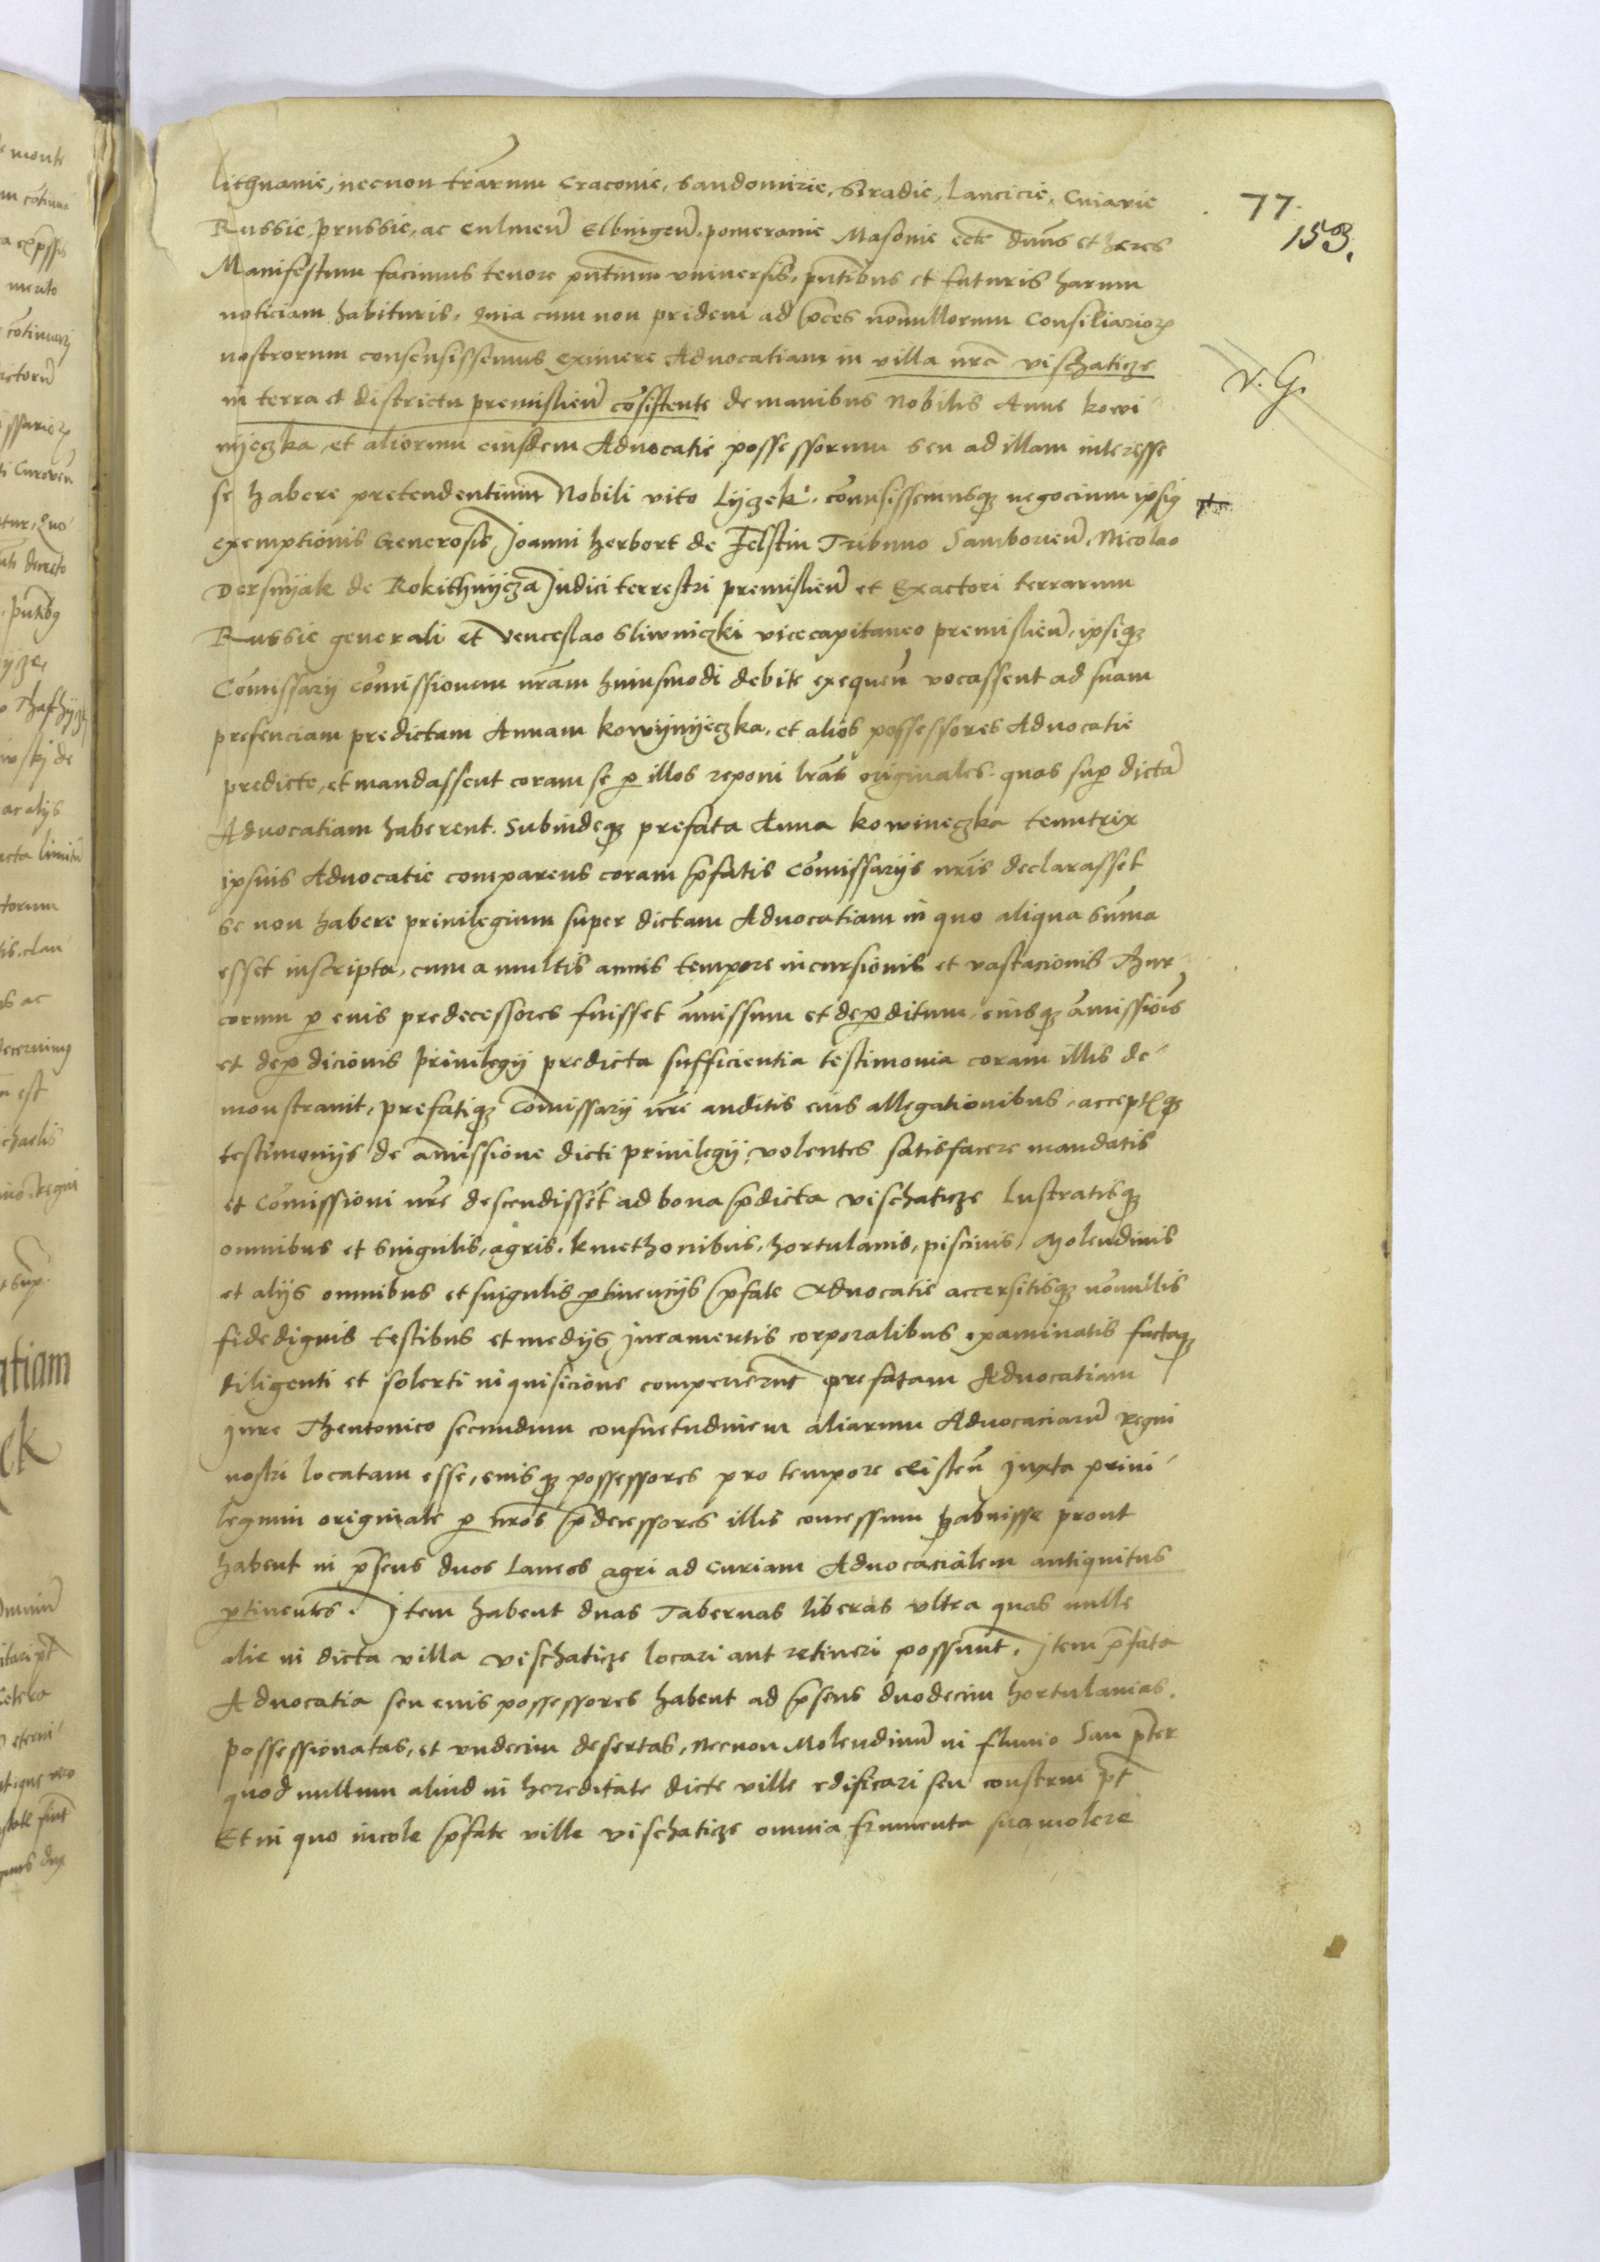 77.
153.
Lithuanie, necnon trarum Cracovie, Sandomirie, Siradie, Lancicie, Cuiavie
Russie, Prussie, ac Culmen̄ Elbingen̄, pomeranie Masovie ectc dn̄us et heres
Manifestum facimus tenore pn̄tium universis, pn̄tibus et futuris harum
noticiam habituris, Quia cum non pridem ad p̄ces nonnullorum Consiliarioꝝ
nostrorum consensissemus eximere Advocatiam in villa nr̄a vischaticze
in terra et districtu premislien̄ cōsistente de manibus Nobilis Anne kowi-
nyeczka, et aliorum eiusdem Advocatie possessorum seu ad illam interesse
se habere pretendentium Nobili vito Lyzek. cōmisissemusqꝫ negocium ipsiꝰ
V. G.
exemptionis Generosis Joanni herbort de Felstin Tribuno Samborien̄, Nicolao
Dersnyak de Rokithnycza Judici terrestri premislien̄ et Exactori terrarum
Russie generali et Venceslao Sliwniczki vicecapitaneo premislien̄, ipsiqꝫ
Cōmissarij cōmissionem nr̄am huiusmodi debite exequen̄ vocassent ad suam
presenciam predictam Annam kowynyeczka, et alios possessores Advocatie
predicte, et mandassent coram se ꝑ illos reponi lr̄as originales. quas suꝑ dictā
Advocatiam haberent. Subindeqꝫ prefata Anna kowineczka tenutrix
ipsius Advocatie comparens coram p̄fatis Cōmissarijs nr̄is declarasset
se non habere privilegium super dictam Advocatiam in quo aliqua sūma
esset inscripta, cum a multis annis tempore incursionis et vastacionis Thur-
corum ꝑ eius predecessores fuisset āmissum et deꝑditum, eiusqꝫ āmissiōis
et deꝑdicionis privilegij predicta sufficientia testimonia coram illis de-
monstravit, prefatiqꝫ Cōmissarij nr̄e auditis eius allegationibus, acceptisqꝫ
testimonijs de āmissione dicti privilegij, volentes satisfacere mandatis
et Cōmissioni nr̄e descendissēt ad bona p̄dicta vischaticze Lustratisqꝫ
omnibus et singulis, agris, kmethonibus, hortulanis, piscinis, Molendinis
et alijs omnibus et singulis ꝑtinencijs p̄fate Advocatie accersitisqꝫ nōnullis
fidedignis testibus et medijs Juramentis corporalibus examinatis factaqꝫ
diligenti et solerti inquisicione comperierunt prefatam Advocatiam
Jure Theutonico secundum consuetudinem aliarum Advocaciarū Regni
nostri locatam esse, eiusqꝫ possessores pro tempore existen̄ Juxta privi-
legium originale ꝑ nr̄os p̄decessores illis concessum habuisse prout
habent in p̄sens duos Laneos agri ad Curiam Advocacialem antiquitus
ꝑtinentes. Item habent duas Tabernas liberas ultra quas nulle
alie in dicta villa vischaticze locari aut retineri possunt. Item p̄fata
Advocatia seu eius possessores habent ad p̄sens duodecim hortulanias
possessionatas, et undecim desertas, Necnon Molendinū in fluvio San p̄ter
quod nullum aliud in hereditate dicte ville edificari seu construi pt̄
Et in quo incole p̄fate ville vischaticze omnia frumenta sua molere